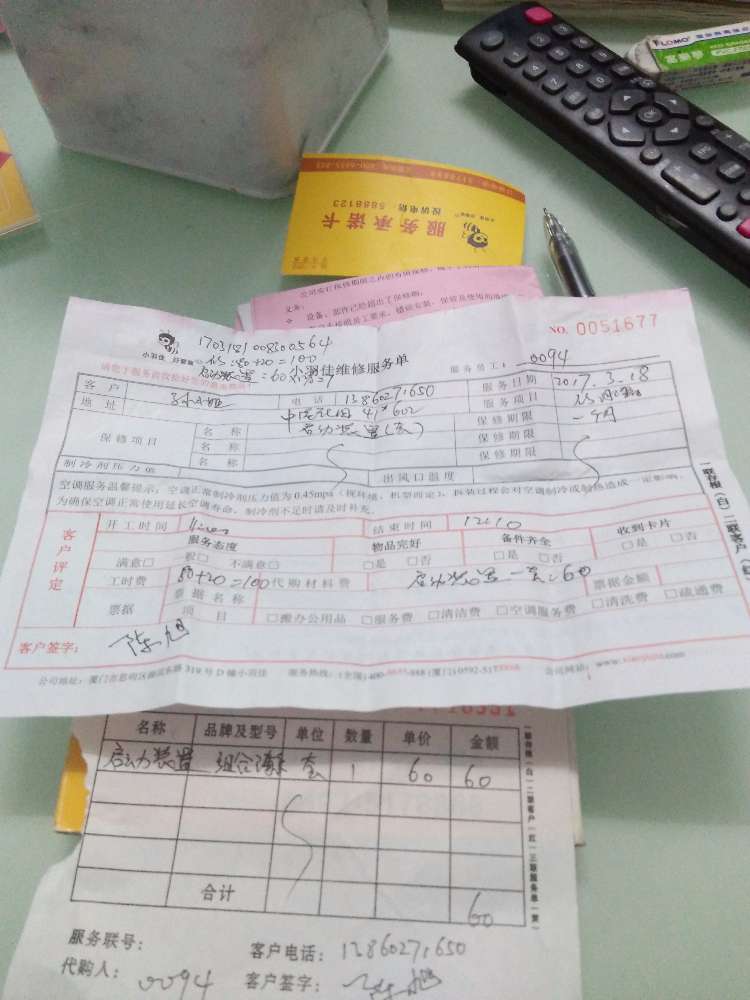 FLOMO
服务承诺卡
投诉电话 5888123
公司或在保修期限之内的有效保修
义务:
设备、部件已经超出了保修期
NO. 0051677
1703181008300564
修:80+20=100
启动装置:60
小羽佳 好管家
小羽佳维修服务单
服务员工: 0094
客户
电话 13860271650
服务日期 2017.3.18
地址 41#602
服务项目
保修项目
名称 启动装置(套)
保修期限 一个月
名称
保修期限
名称
保修期限
制冷剂压力值
出风口温度
空调服务温馨提示:空调正常制冷剂压力值为0.45mpa(视环境、机型而定),拆装过程会对空调制冷或制热造成一定影响,
为确保空调正常使用延长空调寿命,制冷剂不足时请及时补充。
客户评定
开工时间
结束时间 12:10
服务态度
物品完好
备件齐全
收到卡片
满意□ 一般□ 不满意□
□是 □否
□是 □否
□是 □否
工时费 80+20=100
代购材料费 启动装置一套:60
票据金额
票据
票据名称
项目
□搬办公用品 □服务费 □清洁费 □空调服务费 □清洗费 □疏通费
客户签字: 陈旭
一联存根(白)二联客户(红)
服务热线:(全国)400-
(厦门)0592-
公司网站:www.
名称 品牌及型号 单位 数量 单价 金额
启动装置 套 1 60 60
合计 60
一联存根(白)二联客户(红)三联服务单(黄)
服务联号:
客户电话: 13860271650
代购人: 0094
客户签字: 陈旭